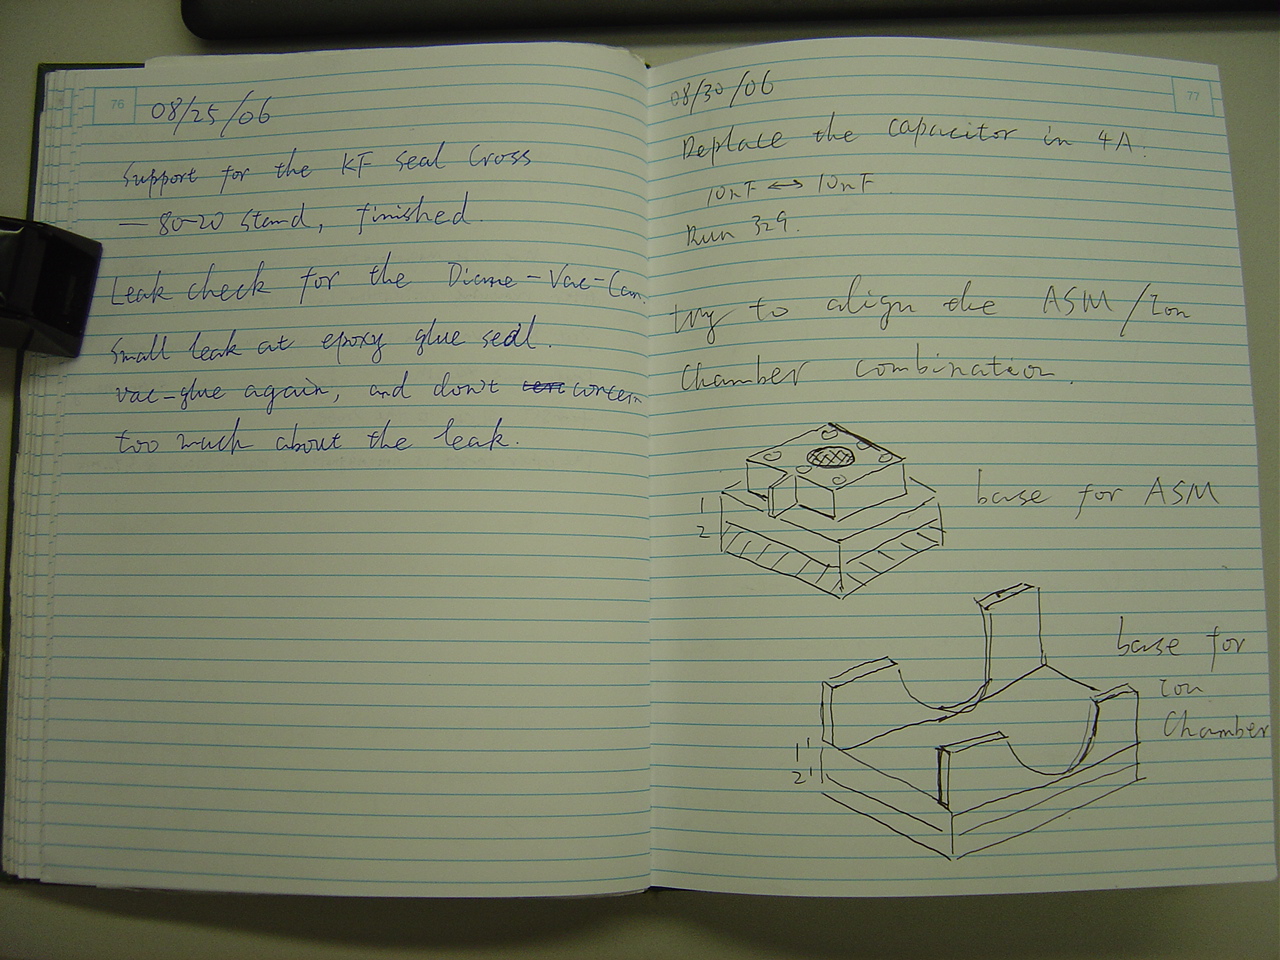 76
08/25/06
Support for the KF seal Cross
— 80-20 stand, finished.
Leak check for the Diane-Vac-Can.
Small leak at epoxy glue seal.
Vac-glue again, and don't concern
too much about the leak.
77
08/30/06
Replace the capacitor in 4A.
10nF ↔ 10nF.
Run 329.
try to align the ASM/Ion
Chamber combination.
base for ASM
1
2
base for
Ion
Chamber
1'
2'